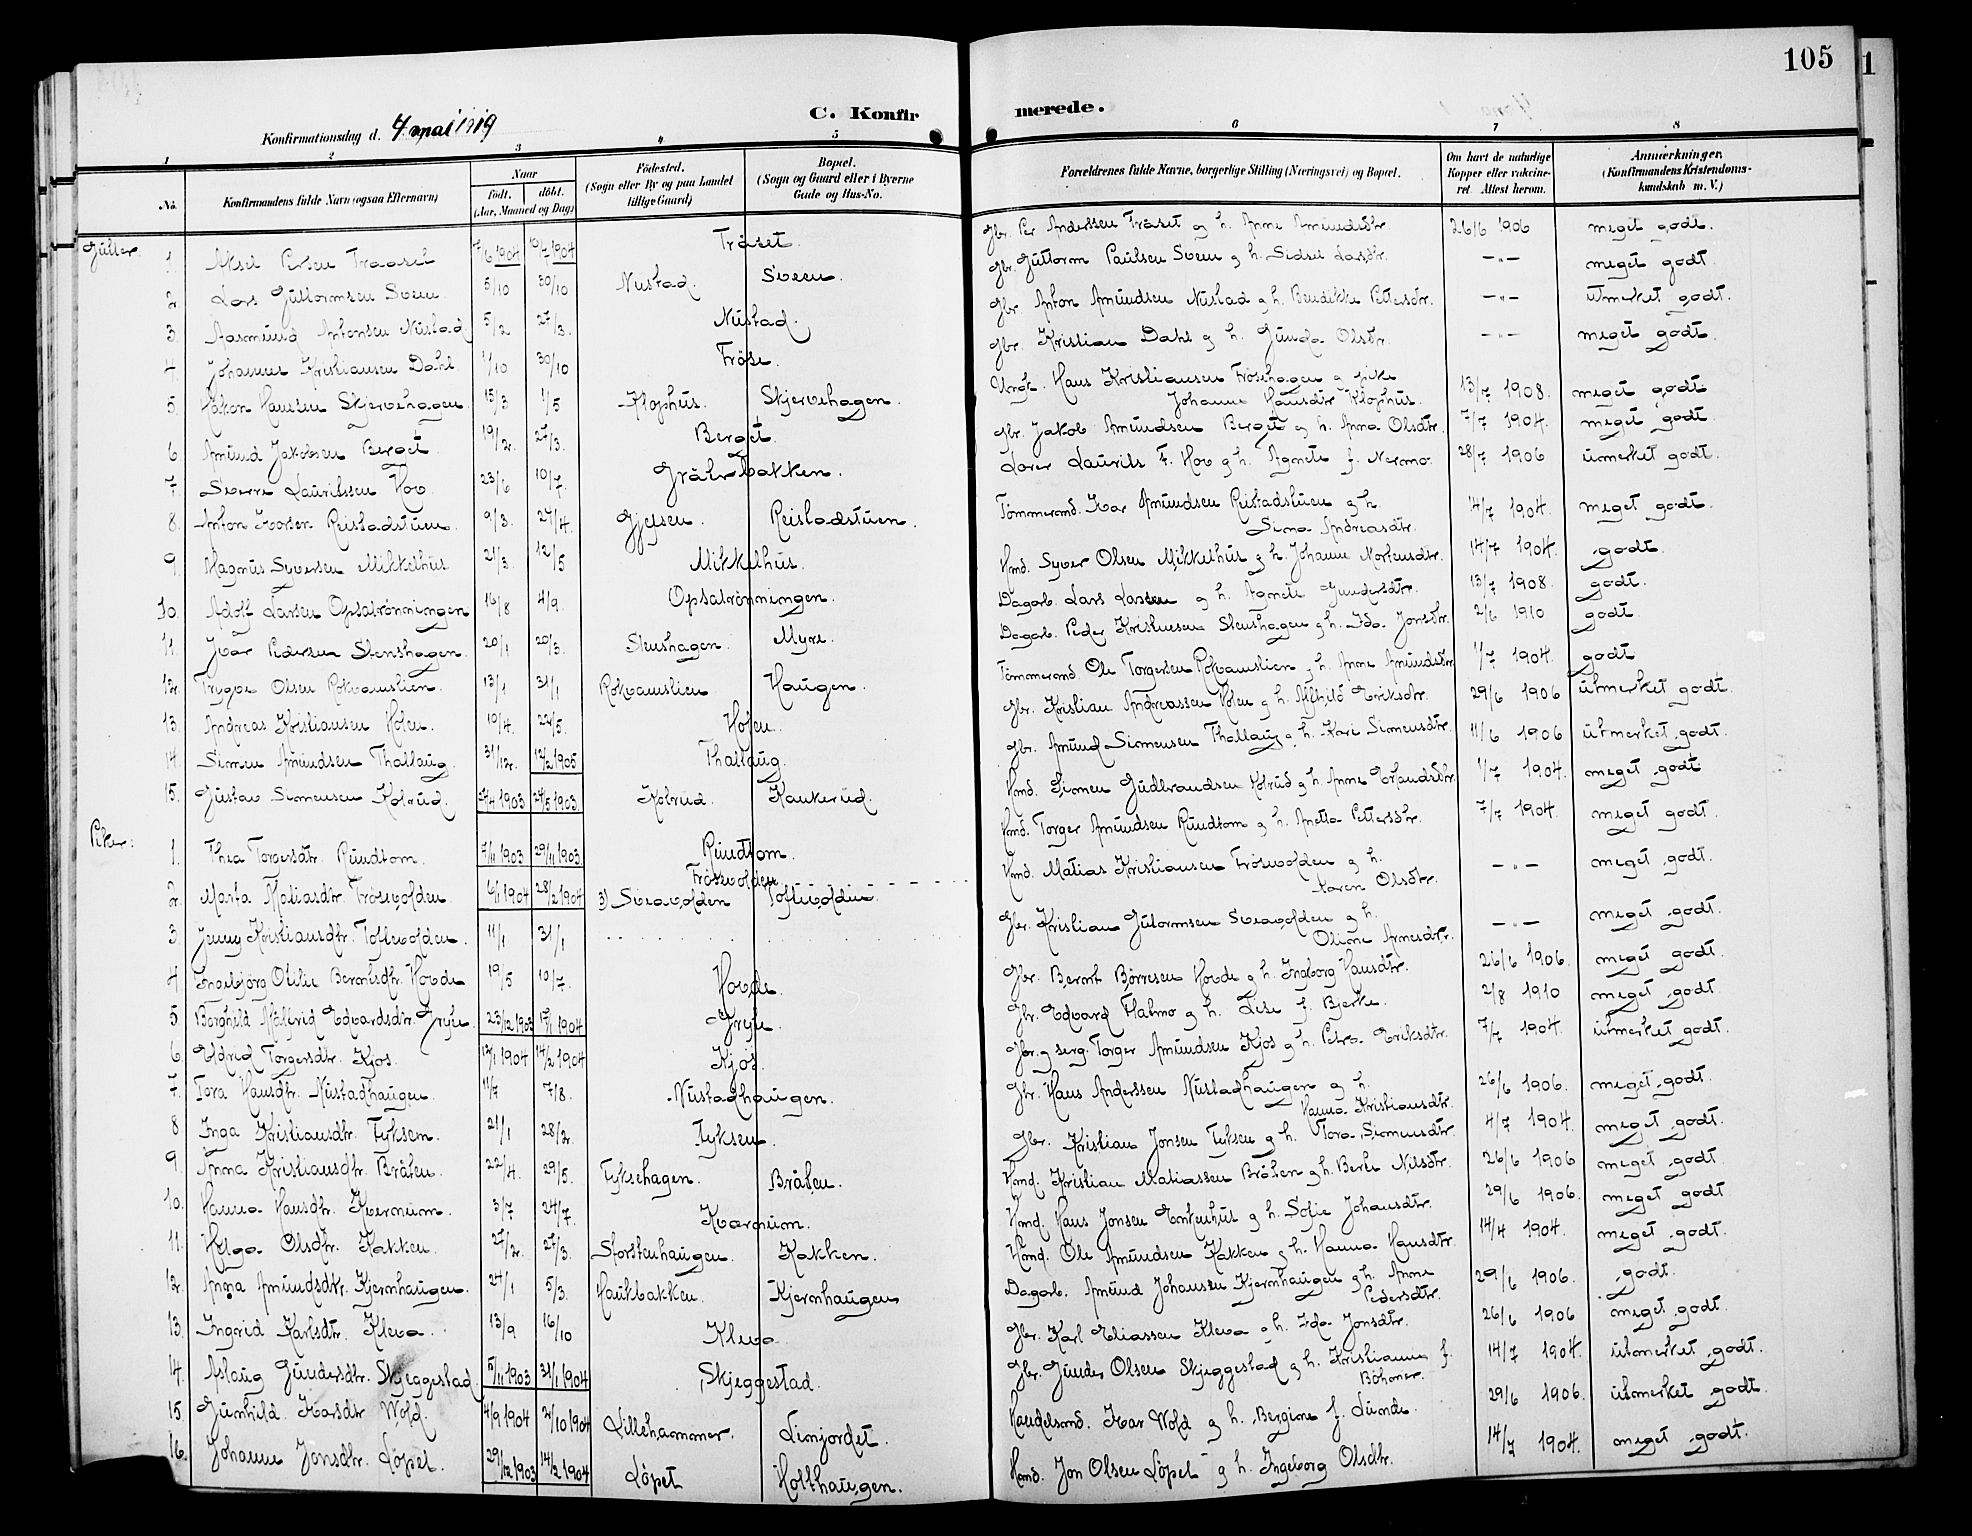 105
C. Konfirmerede.
Konfirmationsdag d. 4 mai 1919
1 2 3 4 5 6 7 8
No. Konfirmandens fulde Navn (ogsaa Efternavn) Naar født. døbt. (Aar, Maaned og Dag) Fødested. (Sogn eller By og paa Landet tillige Gaard) Bopæl. (Sogn og Gaard eller i Byerne Gade og Hus-No. Forældrenes fulde Navne, borgerlige Stilling (Næringsvei) og Bopæl. Om havt de naturlige Kopper eller vaccineret Attest herom. Anmærkninger. (Konfirmandens Kristendomskundskab m. V.)
Gutter:
1. Aksel Persen Traaset 7/6 1904 10/7 1904 Tråset. Gbr. Per Anderssen Tråset og h. Anne Amundsdtr. 26/6 1906 meget godt.
2. Lars Guttormsen Sveen 5/10 30/10 Nustad. Sveen. Gbr. Guttorm Paulsen Sveen og h. Sidsel Larsdtr. —"— meget godt.
3. Aasmund Antonsen Nustad 5/2 27/3. Nustad. Gbr. Anton Amundsen Nustad og h. Bendikke Pettersdtr. —"— utmerket godt.
4. Johannes Kristiansen Dahl 1/10 30/10 Frøse. Gbr. Kristian Dahl og h. Gunda Olsdtr. —"— meget godt
5. Håkon Hanssen Skjervehagen. 15/3 1/5 Klophus. Skjervehagen. Ungk. Hans Kristiansen Frøsehagen og pike
Johanne Hansdtr Klophus. 13/7 1908. meget godt
6 Amund Jakobsen Berget. 19/2. 27/3. Berget. Gbr. Jakob Amundsen Berget og h. Anna Olsdtr. 7/7 1904. meget godt
7. Sverre Lauritssen Hov. 23/6 10/7. Gråbrbakken. Lærer Laurits F. Hov og h. Agnete f. Nermo. 28/7 1906 utmerket godt.
8. Anton Ivarsen Reistadstuen. 9/3. 27/4. Gjefsen. Reistadstuen. Tømmermd. Ivar Amundsen Reistadstuen og h.
Sina Andreasdtr. 14/7 1904. meget godt.
9. Magnus Syversen Mikkelhus 21/3. 12/5 Mikkelhus. Hmd. Syver Olsen Mikkelhus og h. Johanne Mortensdtr. 14/7 1904. godt.
10. Adolf Larsen Opsalrønningen 16/8 4/9. Opsalrønningen. Dagarb. Lars Larsen og h. Agnete Gundersdtr. 13/7 1908. godt.
11. Ivar Pedersen Stenshagen. 20/1 20/3. Stenshagen. Myre. Dagarb. Peder Kristensen Stenshagen og h. Ida Jonsdtr. 2/6 1910 godt.
12. Trygve Olsen Rokvamslien. 13/1 31/1 Rokvamslien Haugen. Tømmermd. Ole Torgersen Rokvamslien og h. Anne Amundsdtr 1/7 1904. godt
13. Andreas Kristiansen Holen. 10/4. 22/5. Holen. Gbr. Kristian Andreassen Holen og h. Alfhild Eriksdtr. 29/6 1906 utmerket godt.
14. Simen Amundsen Thallaug. 31/12. 12/2 1905 Thallaug. Gbr. Amund Simensen Thallaug og h. Kari Simensdtr. 11/6 1906 utmerket godt.
15. Gustav Simensen Kolrud. 27/4 1903 24/5 1903. Kolrud. Kankerud. Hmd. Simen Gudbrandsen Kolrud og h. Anne Erlandsdtr. 1/7 1904. meget godt
Piker:
1. Thea Torgersdtr. Rundtom. 7/11 1903 29/11 1903. Rundtom. Hmd. Torger Amundsen Rundtom og h. Anetta Pettersdtr. 7/7 1904. meget godt.
2. Marta Matiasdtr. Frøsevolden. 6/1 1904 28/2 1904 Frøsevolden Hmd. Matias Kristiansen Frøsevolden og h.
Karen Olsdtr. —"— meget godt.
3. Jenny Kristiansdtr. Toftevolden. 11/1 31/1 3) Sveavolden Toftevolden. Gbr. Kristian Gutormsen Sveavolden og h.
Oline Arnesdtr. —"— meget godt.
4 Ingebjørg Otilie Berntsdtr. Hovde 19/5 10/7. Hovde. Gbr. Bernt Børresen Hovde og h. Ingeborg Hansdtr. 26/6 1906. meget godt.
5 Borghild Målfrid Edvardsdtr. Gryte. 23/12 1903 17/1 1904 Gryte. Gbr. Edvard Flatmo og h. Lise f. Bjerke. 2/8 1910 meget godt.
6. Eldrid Torgersdtr. Kjos. 12/1 1904 14/2 1904 Kjos. Gbr. og serg. Torger Amundsen Kjos og h. Petra Eriksdtr. 7/7 1904. utmerket godt.
7. Tora Hansdtr. Nustadhaugen. 11/7 7/8. Nustadhaugen. Gbr. Hans Anderssen Nustadhaugen og h.
Hanna Kristiansdtr. 26/6 1906. meget godt.
8 Inga Kristiansdtr. Fyksen. 21/1 28/2. Fyksen. Gbr. Kristian Jonsen Fyksen og h. Tora Simensdtr. 4/7 1904. meget godt.
9. Anna Kristiansdtr. Bråten. 22/4. 29/5. Fyksehagen. Bråten. Hmd. Kristian Matiassen Bråten og h. Berte Nilsdtr. 26/6 1906 meget godt.
10. Hanna Hansdtr. Kvernum. 3/7 24/7. Kvernum. Hmd. Hans Jonsen Enkenhus og h. Sofie Johansdtr. 29/6 1906. meget godt
11. Helga Olsdtr. Kakken. 27/2. 27/3. Storstenhaugen. Kakken. Hmd. Ole Amundsen Kakken og h. Hanna Hansdtr 14/4 1904. meget godt.
12. Anna Amundsdtr. Kjernhaugen. 24/1 5/3. Haukbakken. Kjernhaugen Dagarb. Amund Johanssen Kjernhaugen og h. Anne
Pedersdtr. 29/6 1906. godt.
13. Ingrid Karlsdtr. Kleva. 13/9 16/10 Kleva. Gbr. Karl Eliassen Kleva og h. Ida Jonsdtr. 26/6 1906 meget godt.
14. Aslaug Gundersdtr. Skjeggestad 5/11 1903 31/1 1904 Skjeggestad. Gbr. Gunder Olsen Skjeggestad og h. Kristianne f.
Böhmer. 14/7 1904. utmerket godt.
15. Gunhild Ivarsdtr Wold. 4/9 1904 2/10 1904 Lillehammer. Limjordet. Handelsmd. Ivar Wold og h. Bergine f. Lunde. 29/6 1906. utmerket godt.
16. Johanne Jonsdtr. Løpet. 29/12 1903 14/2 1904 Løpet Holthaugen. Hmd. Jon Olsen Løpet og h. Ingeborg Olsdtr. 14/7 1904. meget godt.